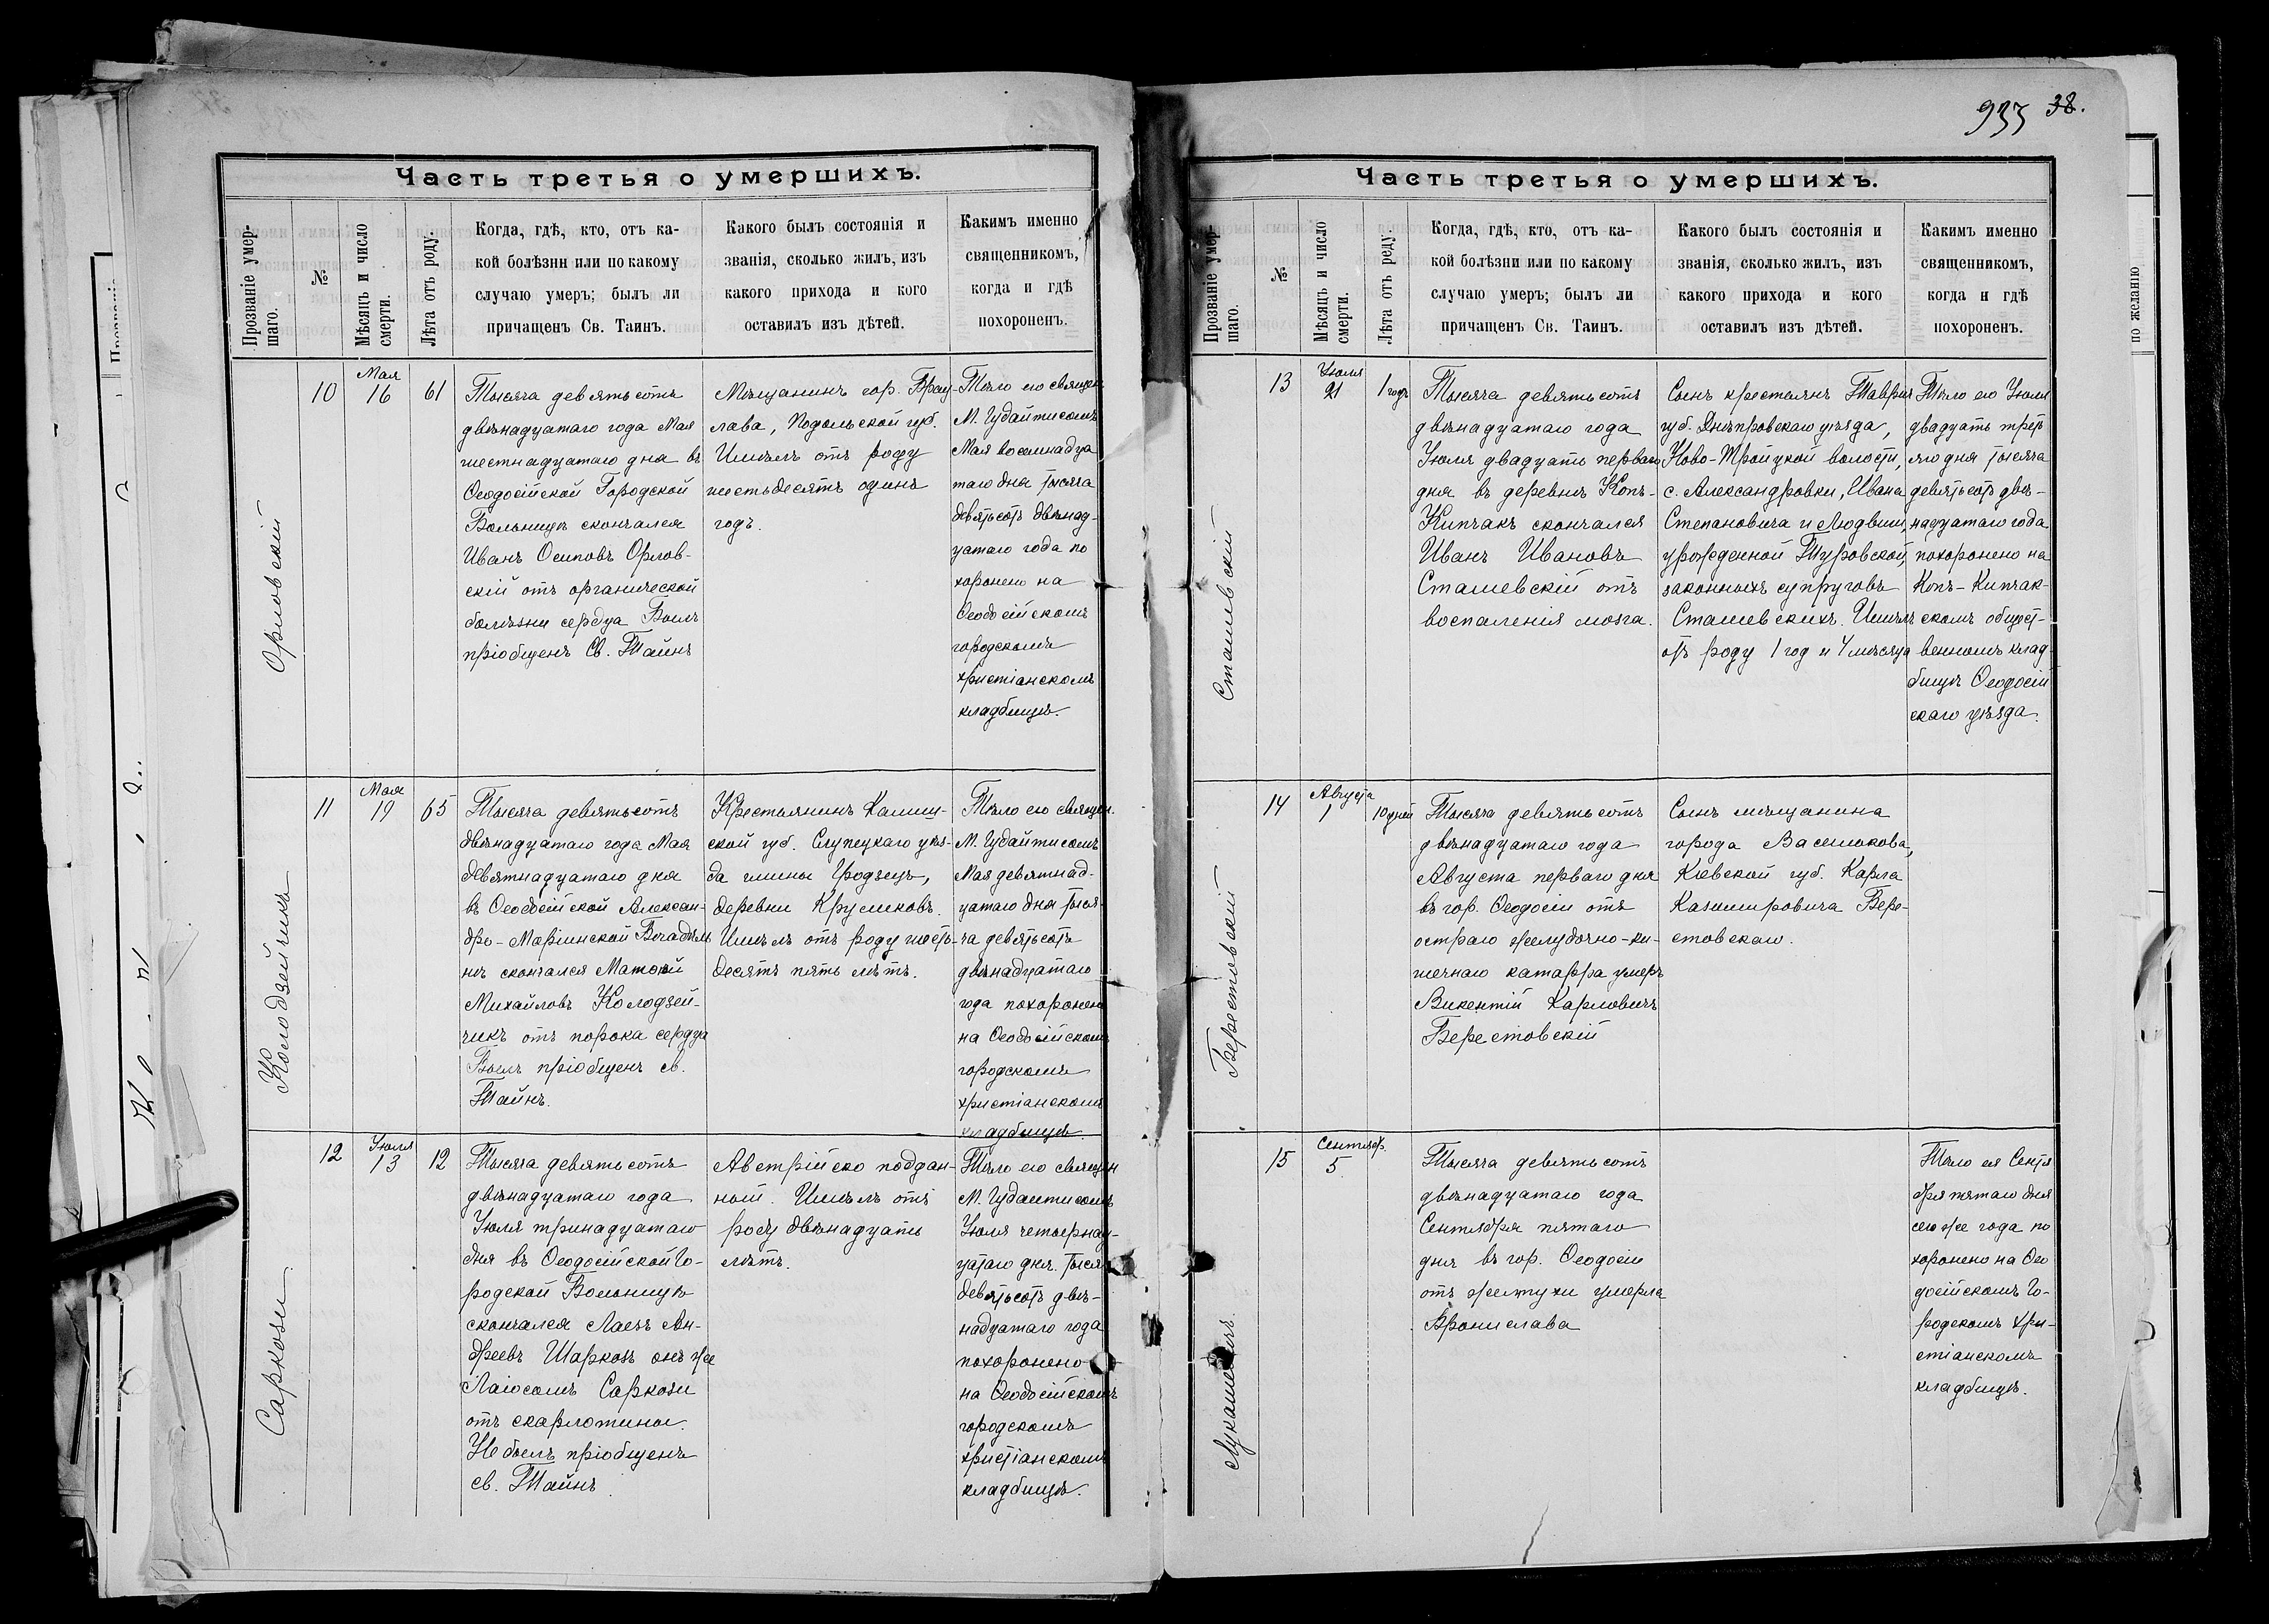 933 38.
Часть третья о умершихъ.
Прозваніе умер-
шаго.
№
Мѣсяцъ и число
смерти.
Лѣта отъ роду.
Когда, гдѣ, кто, отъ ка-
кой болѣзни или по какому
случаю умеръ; былъ ли
причащенъ Св. Таинъ.
Какого былъ состоянія и
званія, сколько жилъ, изъ
какого прихода и кого
оставилъ изъ дѣтей.
Каким​ъ именно
священникомъ,
когда и гдѣ
похороненъ.
Орловскій
10
Мая
16
61
Тысяча девятьсотъ
двѣнадцатаго года Мая
шестнадцатаго дня въ
Ѳеодосійской Городской
Больницѣ скончался
Иванъ Осиповъ Орлов-
скій отъ органической
болѣзни сердца Былъ
пріобщенъ Св. Тайнъ
Мѣщанинъ гор. Брац-
лава, Подольской губ.
Имѣлъ отъ роду
шестьдесятъ одинъ
годъ.
Тѣло его священ.
М. Гудайтисомъ
Мая восемнадца
таго дня тысяча
девятьсотъ двѣнад-
цатаго года по
хоронено на
Ѳеодосійскомъ
городскомъ
христіанскомъ
кладбищѣ.
Колодзейчикъ
11
Мая
19
65
Тысяча девятьсотъ
двѣнадцатаго года Мая
девятнадцатаго дня
въ Ѳеодосійской Алексан-
дро-Маріинской Богадѣль
нѣ скончался Матвѣй
Михайловъ Колодзей-
чикъ отъ порока сердца
Былъ пріобщенъ св.
Тайнъ.
Крестьянинъ Калиш-
ской губ. Слупецкаго уѣз-
да гмины Гродзецъ,
деревни Круликовъ.
Имѣлъ отъ роду шесть-
десятъ пять лѣтъ.
Тѣло его священ.
М. Гудайтисомъ
Мая девятнад-
цатаго дня тыся-
ча девятьсотъ
двѣнадцатаго
года похоронено
на Ѳеодосійскомъ
городскомъ
христіанскомъ
кладбищѣ.
Саркози
12
Іюля
13
12
Тысяча девятьсотъ
двѣнадцатаго года
Іюля тринадцатаго
дня въ Ѳеодосійской Го-
родской Больницѣ
скончался Лаезъ Ан-
дреевъ Шаркозъ онъ же
Лаіосомъ Саркози
отъ скарлатины.
Не былъ пріобщенъ
св. Тайнъ.
Австрійско поддан-
ный. Имѣлъ отъ
роду двѣнадцать
лѣтъ.
Тѣло его священ
М. Гудайтисомъ
Іюля четырнад-
цатаго дня тысяч
девятьсотъ двѣ-
надцатаго года
похоронено
на Ѳеодосійскомъ
городскомъ
христіанскомъ
кладбищѣ.
Часть третья о умершихъ.
Прозваніе умер-
шаго.
№
Мѣсяцъ и число
смерти.
Лѣта отъ роду.
Когда, гдѣ, кто, отъ ка-
кой болѣзни или по какому
случаю умеръ; былъ ли
причащенъ Св. Таинъ.
Какого былъ состоянія и
званія, сколько жилъ, изъ
какого прихода и кого
оставилъ изъ дѣтей.
Какимъ именно
священникомъ,
когда и гдѣ
похороненъ.
Сташевскій
13
Іюля
21
1 годъ
Тысяча девятьсотъ
двѣнадцатаго года
Іюля двадцать перваго
дня въ деревнѣ Копъ-
Кипчакъ скончался
Иванъ Ивановъ
Сташевскій отъ
воспаленія мозга.
Сынъ крестьянъ Таврич
губ. Днѣпровскаго уѣзда,
Ново-Троицкой волости,
с. Александровки, Ивана
Степановича и Людвики,
урожденной Туровской,
законныхъ супруговъ
Сташевскихъ. Имѣлъ
отъ роду 1 год и 4 мѣсяца
Тѣло его Іюля
двадцать треть
яго дня тысяча
девятьсотъ двѣ-
надцатаго года
похоронено на
Копъ-Кипчак-
скомъ общест-
венномъ клад-
бищѣ Ѳеодосій
скаго уѣзда.
Берестовскій
14
Августа
1
10 дней
Тысяча девятьсотъ
двѣнадцатаго года
Августа перваго дня
въ гор. Ѳеодосіи отъ
остраго желудочно-ки-
шечнаго катарра умеръ
Викентій Карловичъ
Берестовскій
Сынъ мѣщанина
города Василькова,
Кіевской губ. Карла
Казимировича Бере-
стовскаго.
Лукашевичъ
15
Сентября.
5
Тысяча девятьсотъ
двѣнадцатаго года
Сентября пятаго
дня въ гор. Ѳеодосіи
отъ желтухи умерла
Брониславa
Тѣло ея Сентя
бря пятаго дня
сего же года по
хоронено на Ѳео
досійскомъ Го-
родскомъ Хри-
стіанскомъ
кладбищѣ.